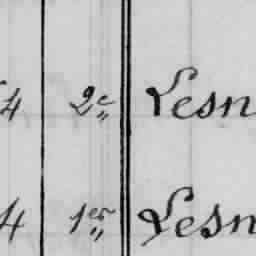 4 2e„ Lesn
4 1er„ Lesn